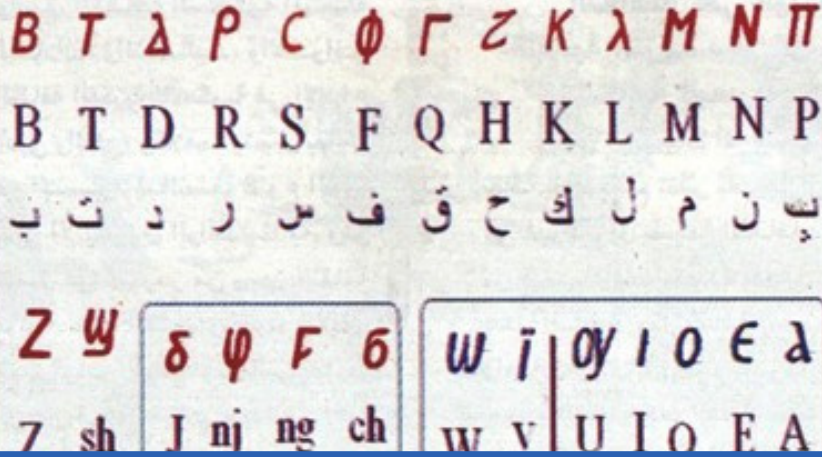 B T Δ Ρ C ϕ Γ ζ K λ M N Π
B T D R S F Q H K L M N P
ب ت د ر س ف ق ح ك ل م ن پ
Z ϣ δ ψ F б ω ï ογ ι ο ϵ λ
Z sh J nj ng ch W Y U I O E A